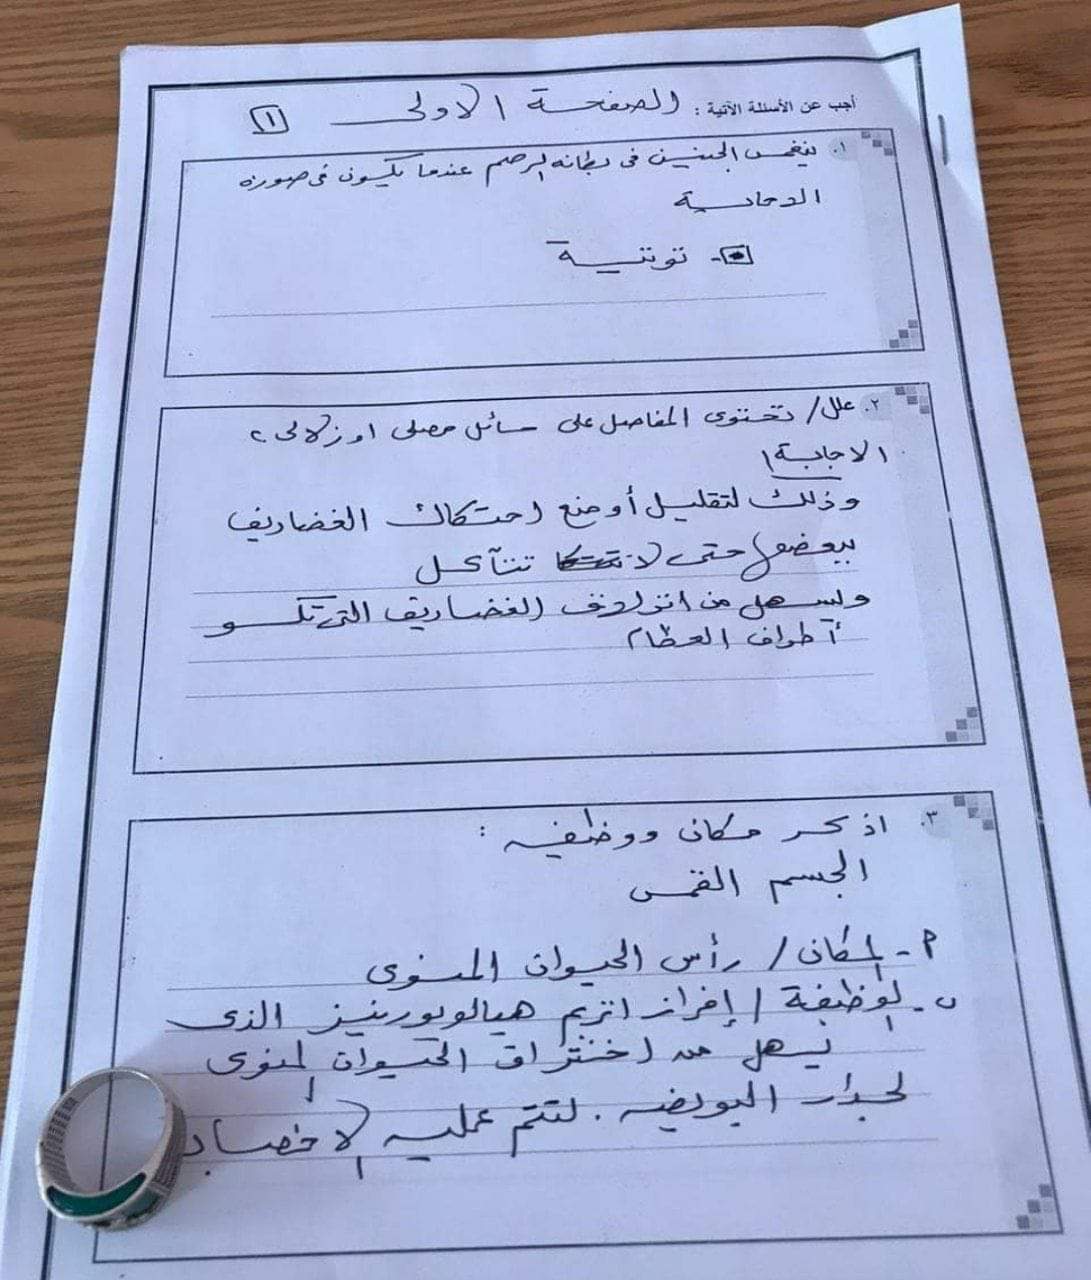 أجب عن الأسئلة الآتية : الصفحة الاولى ١
١. ينغمس الجنين في بطانه الرحم عندما يكون في صورة
التوتية
- توتية
٢. علل/ تحتوى المفاصل على سائل مصلى او زلالى ؟
الاجابة/
وذلك لتقليل أو منع احتكاك الغضاريف
ببعضها حتى لا تتآكل
ويسهل من انزلاق الغضاريف التى تكسو
أطراف العظام
٣. اذكر مكان ووظيفه :
الجسم القمى
أ - المكان / رأس الحيوان المنوى
ب - الوظيفة / إفراز انزيم هيالويورينيز الذى
يسهل من اختراق الحيوان المنوى
لجدار البويضه . لتتم عمليه الاخصاب